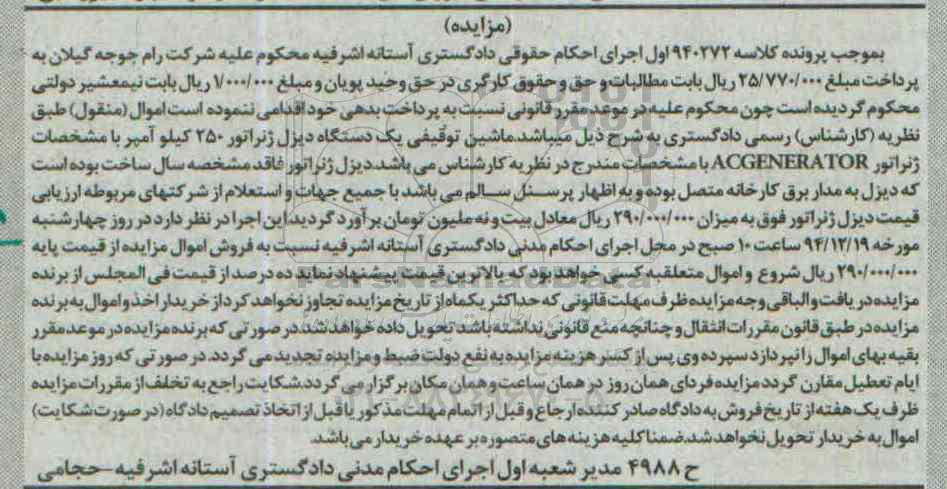 (مزایده)
بموجب پرونده کلاسه ۹۴۰۲۷۲ اول اجرای احکام حقوقی دادگستری آستانه اشرفیه محکوم علیه شرکت رام جوجه گیلان به
پرداخت مبلغ ۲۵/۷۷۰/۰۰۰ ریال بابت مطالبات و حق و حقوق کارگری در حق وحید پویان و مبلغ ۱/۰۰۰/۰۰۰ ریال بابت نیمعشیر دولتی
محکوم گردیده است چون محکوم علیه در موعد مقرر قانونی نسبت به پرداخت بدهی خود اقدامی ننموده است اموال (منقول) طبق
نظریه (کارشناس) رسمی دادگستری به شرح ذیل میباشد.ماشین توقیفی یک دستگاه دیزل ژنراتور ۲۵۰ کیلو آمپر با مشخصات
ژنراتور ACGENERATOR با مشخصات مندرج در نظریه کارشناس می باشد.دیزل ژنراتور فاقد مشخصه سال ساخت بوده است
که دیزل به مدار برق کارخانه متصل بوده و به اظهار پرسنل سالم می باشد با جمیع جهات و استعلام از شرکتهای مربوطه ارزیابی
قیمت دیزل ژنراتور فوق به میزان ۲۹۰/۰۰۰/۰۰۰ ریال معادل بیت و نه ملیون تومان برآورد گردید.این اجرا در نظر دارد در روز چهارشنبه
مورخه ۹۴/۱۲/۱۹ ساعت ۱۰ صبح در محل اجرای احکام مدنی دادگستری آستانه اشرفیه نسبت به فروش اموال مزایده از قیمت پایه
۲۹۰/۰۰۰/۰۰۰ ریال شروع و اموال متعلقبه کسی خواهد بود که بالاترین قیمت پیشنهاد نماید ده درصد از قیمت فی المجلس از برنده
مزایده دریافت والباقی وجه مزایده ظرف مهلت قانونی که حداکثر یکماه از تاریخ مزایده تجاوز نخواهد کرد از خریدار اخذ و اموال به برنده
مزایده در طبق قانون مقررات انتقال و چنانچه منع قانونی نداشته باشد تحویل داده خواهد شد.در صورتی که برنده مزایده در موعد مقرر
بقیه بهای اموال را نپردازد سپرده وی پس از کسر هزینه مزایده به نفع دولت ضبط و مزایده تجدید می گردد. در صورتی که روز مزایده با
ایام تعطیل مقارن گردد مزایده فردای همان روز در همان ساعت و همان مکان برگزار می گردد.شکایت راجع به تخلف از مقررات مزایده
ظرف یک هفته از تاریخ فروش به دادگاه صادر کننده ارجاع و قبل از اتمام مهلت مذکور یا قبل از اتخاذ تصمیم دادگاه (در صورت شکایت)
اموال به خریدار تحویل نخواهد شد.ضمنا کلیه هزینه های متصوره بر عهده خریدار می باشد.
ح ۴۹۸۸ مدیر شعبه اول اجرای احکام مدنی دادگستری آستانه اشرفیه-حجامی
ParsNamadData